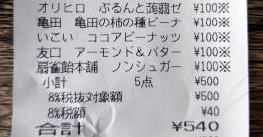 オリヒロ ぷるんと蒟蒻ゼ ¥100※
亀田 亀田の柿の種ピーナ ¥100※
いこい ココアピーナッツ ¥100※
友口 アーモンド&バター ¥100※
扇雀飴本舗 ノンシュガー ¥100※
小計 5点 ¥500
8%税抜対象額 ¥500
8%税額 ¥40
合計 ¥540